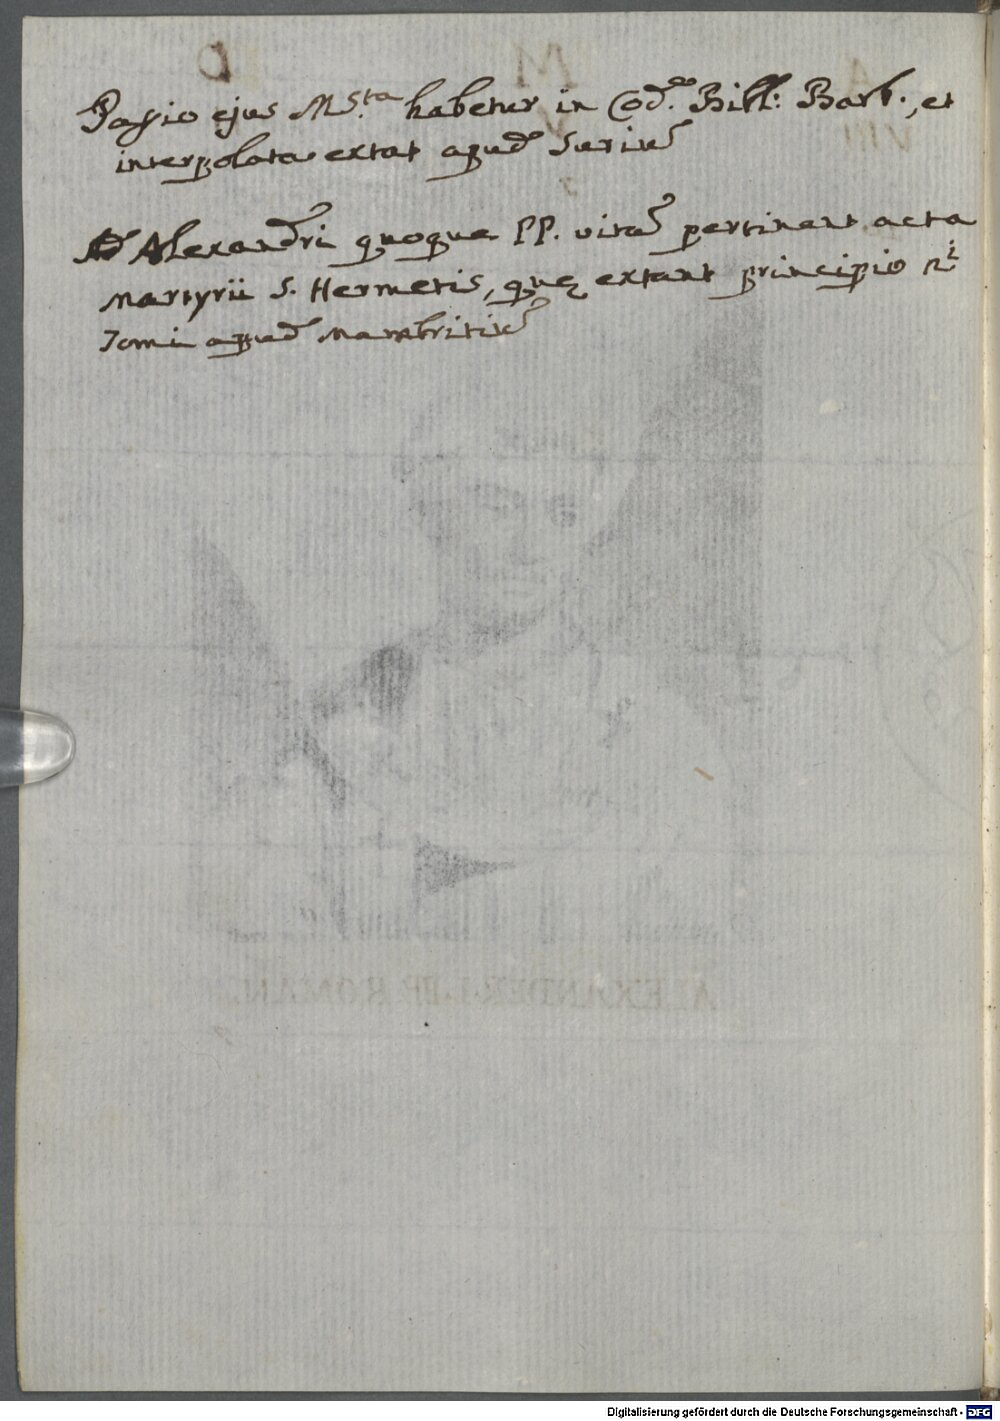 Passio ejus MS.ta habetur in Cod.e Bibl: Barb., et
interpolata extat apud Suriũ
Ad Alexandri quoque PP. vitã pertinent acta
martyrii S. Hermetis, quę extant principio 2.i
Tomi apud Mambritiũ
ALEXANDER·I·PP·ROMAN.
Digitalisierung gefördert durch die Deutsche Forschungsgemeinschaft - DFG